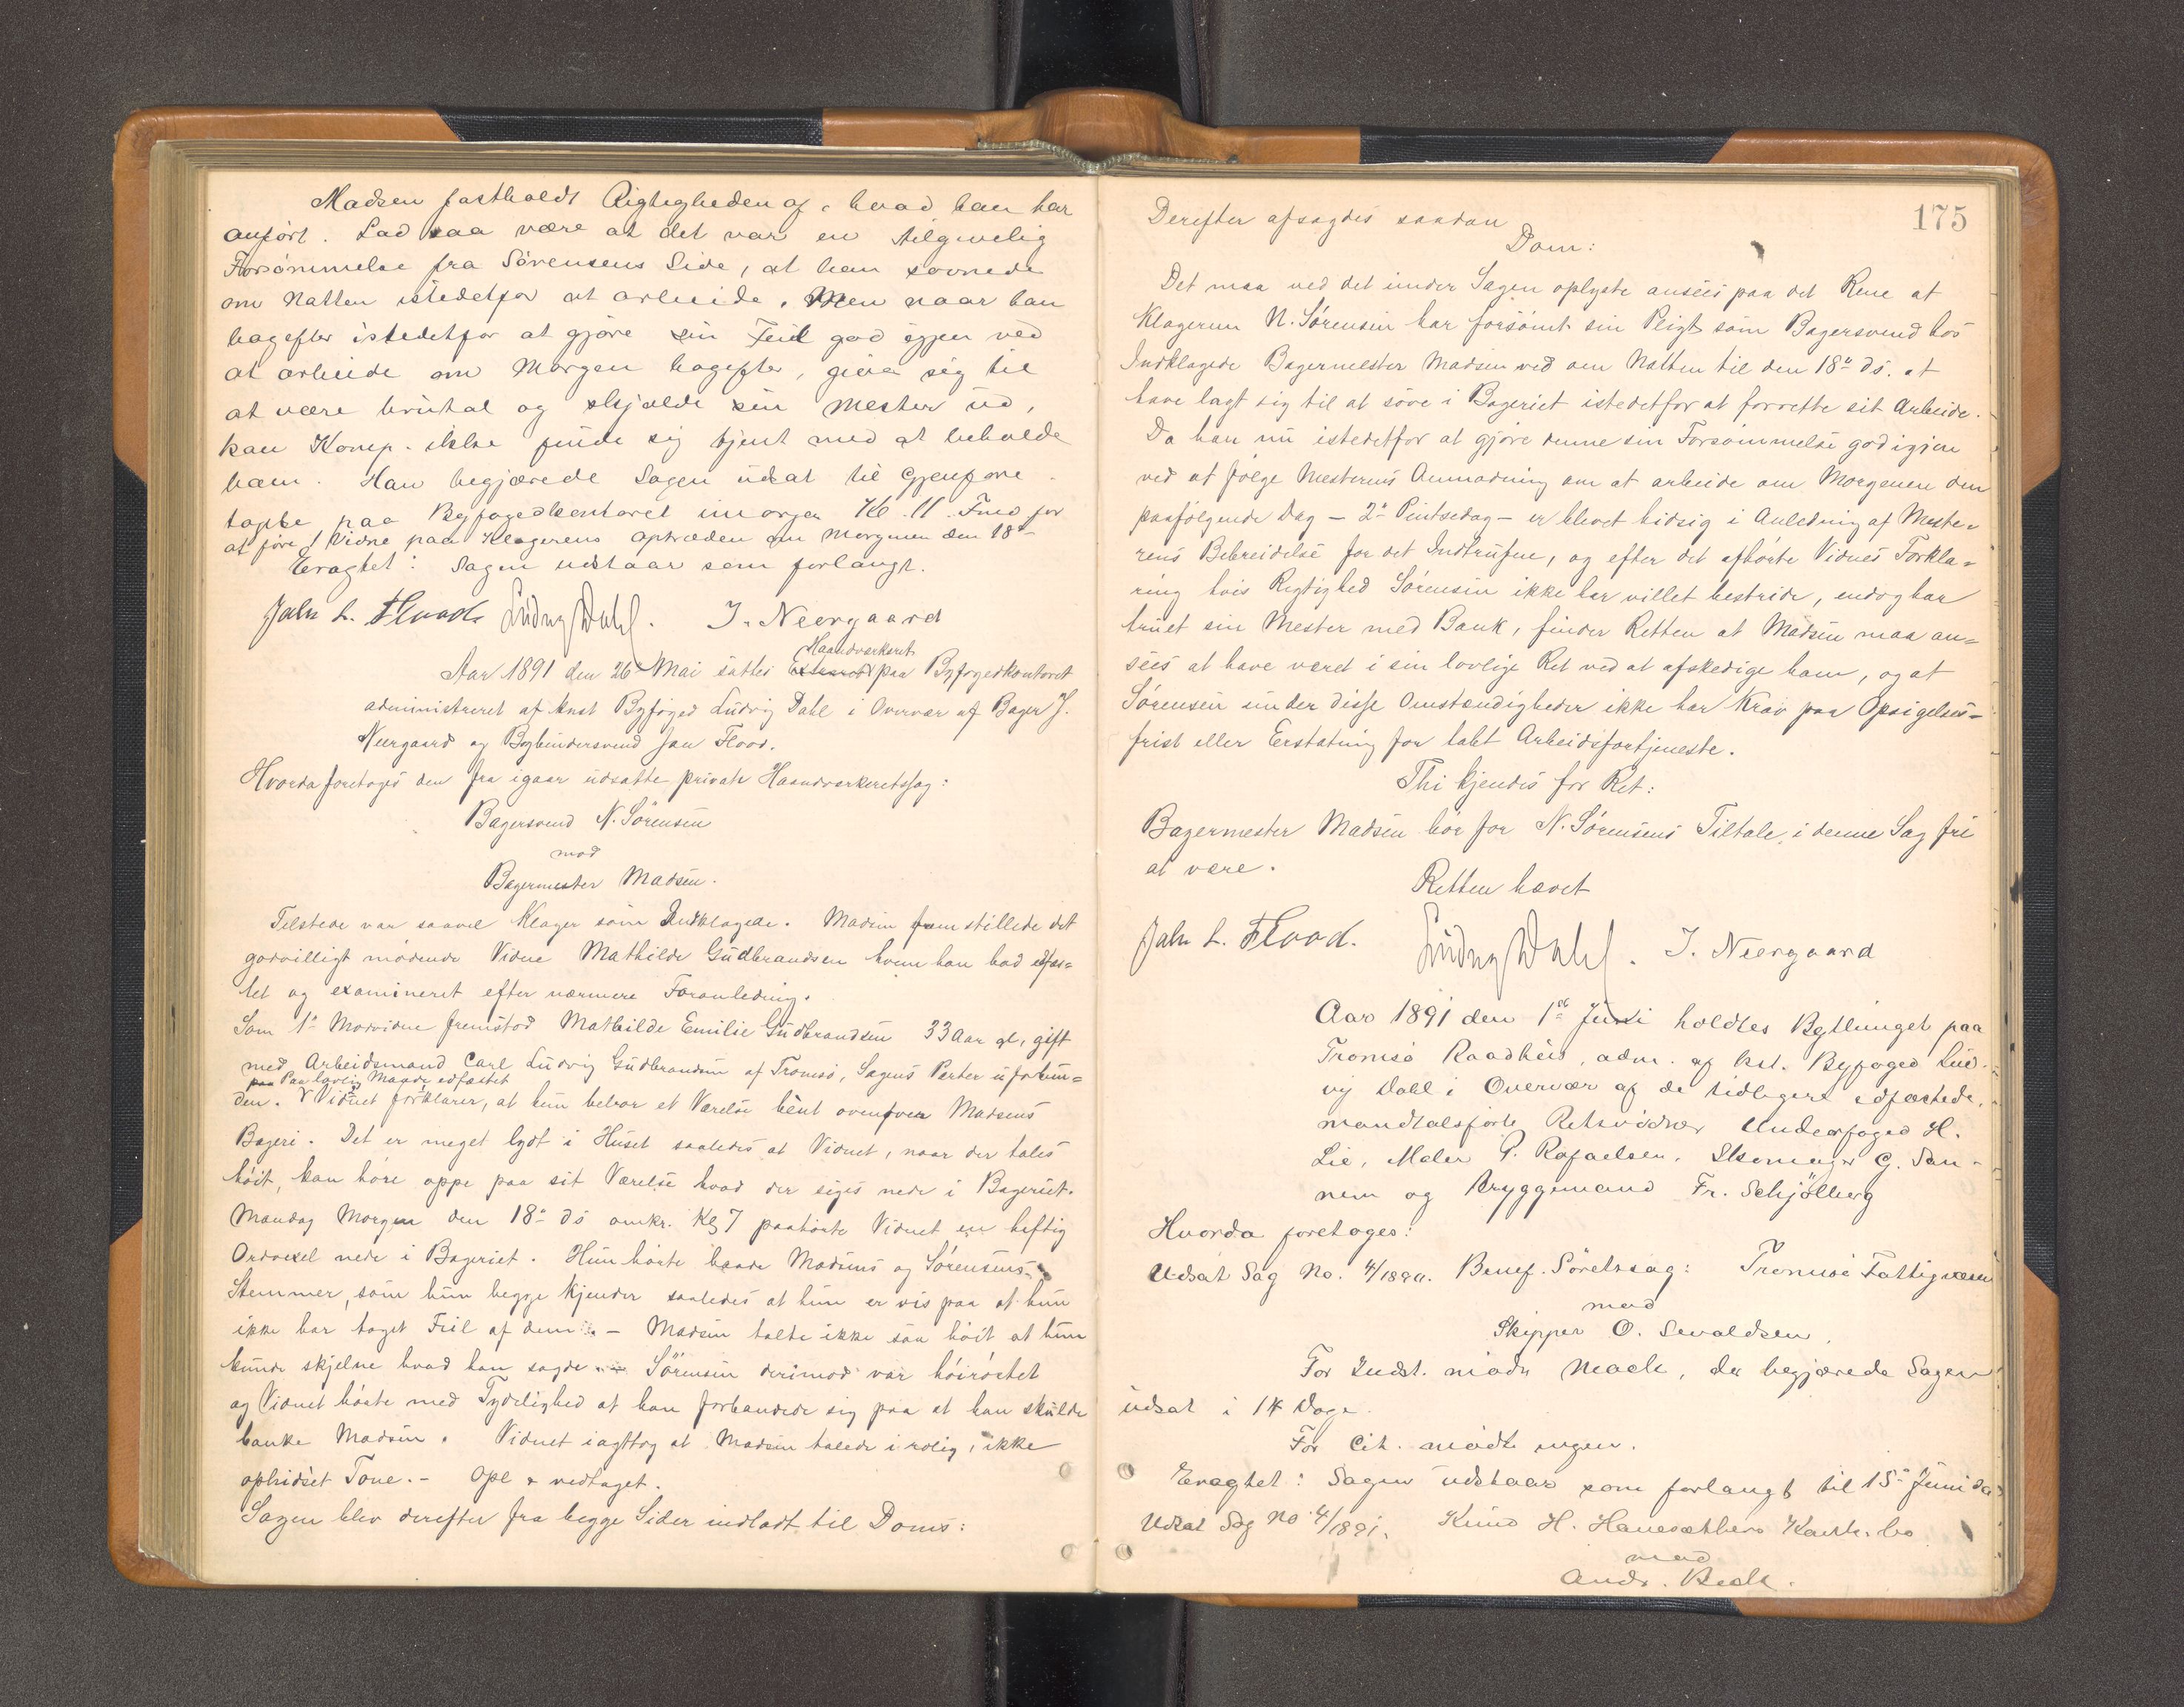 Madsen fastholdt Rigtigheden af hvad han har
anført. Lad saa være at det var en tilgivelig
Forsømmelse fra Sørensens Side, at han sovnede
om Natten istedetfor at arbeide. Men naar han
bagefter istedetfor at gjøre sin Feil god igjen ved
at arbeide om Morgen bagefter, giver sig til
at være brutal og skjælde sin Mester ud,
kan Komp. ikke finde sig tjent med at beholde
ham. Han begjærede Sagen udsat til Gjenfore
tagelse paa Byfogedkontoret imorgen Kl. 11 Fmd for
at føre 1 Vidne paa Klagerens Optræden om Morgenen den 18de
Eragtet: Sagen udstaar som forlangt.
Jahn L. Flood. Ludvig Dahl. J. Neergaard
Haandværksret
Aar 1891 den 26de Mai sattes Extraret paa Byfogedkontoret
administreret af konst Byfoged Ludvig Dahl i Overvær af Bager J.
Neergaard og Bogbindersvend Jan Flood.
Hvorda foretoges den fra igaar udsatte private Haandværkeretssag:
Bagersvend N. Sørensen
mod
Bagermester Madsen.
Tilstede var saavel Klager som Indklagede. Madsen fremstillede det
godvilligt mødende Vidne Mathilde Gudbrandsen hvem han bad edfæs=
tet og examineret efter nærmere Foranledning.
Som 1ste Modvidne fremstod Mathilde Emilie Gudbrandsen 33 Aar gl, gift
med Arbeidsmand Carl Ludvig Gudbrandsen af Tromsø, Sagens Parter uforbun=
paa Paa lovlig Maade edfæstet
den. V Vidnet forklarer, at hun bebor et Værelse bent ovenover Madsens
Bageri. Det er meget lydt i Huset saaledes at Vidnet, naar der tales
høit, kan høre oppe paa sit Værelse hvad der siges nede i Bageriet.
Mandag Morgen den 18de ds omkr. Kl 7 paahørte Vidnet en heftig
Ordvexel nede i Bageriet. Hun hørte baade Madsens og Sørensens
Stemmer, som hun begge kjender saaledes at hun er vis paa at hun
ikke har taget Feil af dem. – Madsen talte ikke saa høit at hun
kunde skjelne hvad han sagde Sørensen derimod var høirøstet
og Vidnet hørte med Tydelighed at han forbandede sig paa at han skulde
banke Madsen. Vidnet iagttog at Madsen talede i rolig, ikke
ophidset Tone. – Opl & vedtaget.
Sagen blev derefter fra begge Sider indladt til Doms:
175
Derefter afsagdes saadan
Dom:
Det maa ved det under Sagen oplyste ansees paa det Rene at
Klageren N. Sørensen har forsømt sin Pligt som Bagersvend hos
Indklagede Bagermester Madsen ved om Natten til den 18de ds. at
have lagt sig til at sove i Bageriet istedetfor at forrette sit Arbeide.
Da han nu istedetfor at gjøre denne sin Forsømmelse god igjen
ved at følge Mesterens Anmodning om at arbeide om Morgenen den
paafølgende Dag – 2den Pintsedag – er blevet hidsig i Anledning af Meste=
rens Bebreidelse for det Indtrufne, og efter det afhørte Vidnes Forkla=
ring hvis Rigtighed Sørensen ikke har villet bestride, endog har
truet sin Mester med Bank, finder Retten at Madsen maa an=
sees at have været i sin lovlige Ret ved at afskedige ham, og at
Sørensen under disse Omstændigheder ikke har Krav paa Opsigelses=
frist eller Erstatning for tabt Arbeidsfortjeneste.
Thi kjendes for Ret:
Bagermester Madsen bør for N. Sørensens Tiltale i denne Sag fri
at være.
Retten hævet
Jahn L. Flood. Ludvig Dahl. J. Neergaard
Aar 1891 den 1ste Juni holdtes Bythinget paa
Tromsø Raadhus, adm. af kst. Byfoged Lud=
vig Dahl i Overvær af de tidligere edfæstede,
mandtalsførte Retsvidner Underfoged H.
Lie, Maler P. Rafaelsen, Skomager G. San=
nem og Bryggemand Fr. Schjølberg
Hvorda foretoges:
Udsat Sag No. 4/1890. Benef. Søretssag: Tromsø Fattigvæsen
mod
Skipper O. Sevaldsen,
For Indst. mødte Mack, der begjærede Sagen
udsat i 14 Dage.
For Cit. mødte ingen.
Eragtet: Sagen udstaar som forlangt til 15de Juni ds
Udsat Sag No 4/1891. Knud H. Hanesæthers Konk. bo
mod
Andr. Beck.